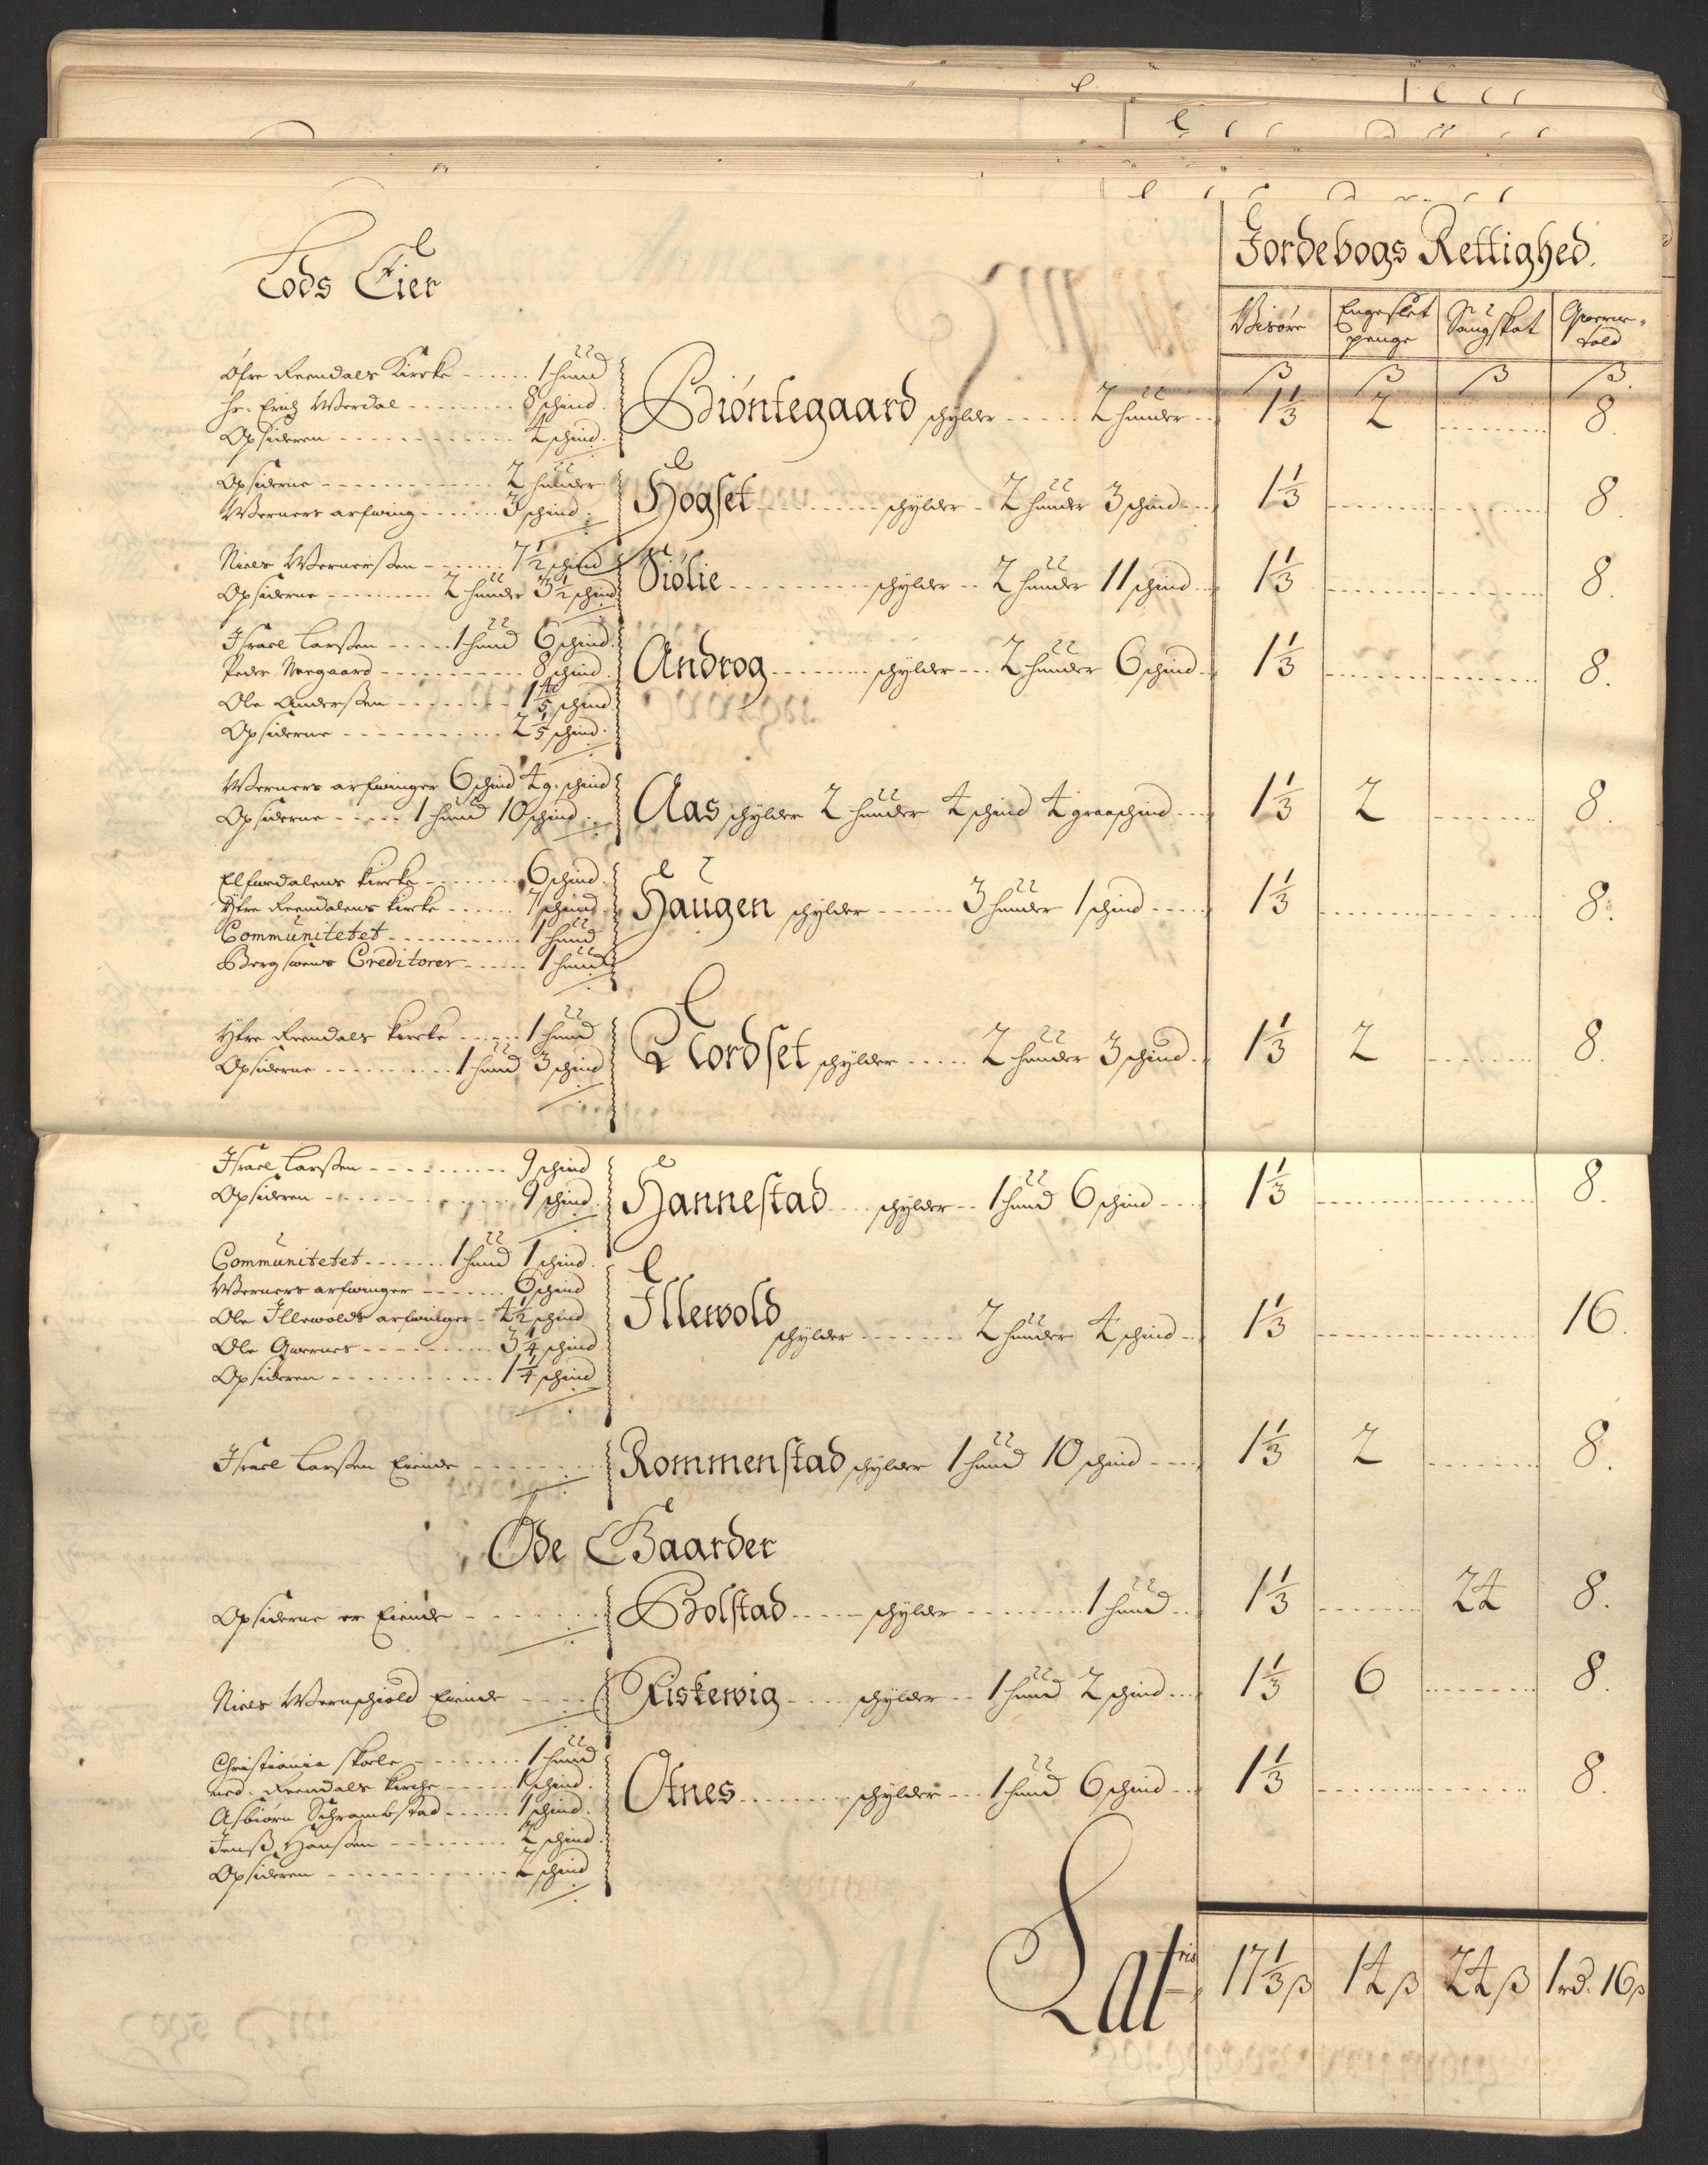 Lods Eier
Jordebogs Rettighed.
Visøre | Engeslet penge | Saugskat | Qverne told
ß | ß | ß | ß.
Øfre Reendals Kircke ------ 1 hund
Hr. Erich Werdal -------- 8 schind.
Opsideren ------------ 4 schind.
Biøntegaard schylder ----- 2 hunder --- 1 1/3 | 2 | ........ | 8.
Opsiderne ------------ 2 hunder
Werners arfwing ------ 3 schind.
Hogset --------- schylder - 2 hunder 3 schind --- 1 1/3 | ........ | ........ | 8.
Niels Wernerßen ------ 7 1/2 schind
Opsiderne -------- 2 hunder 3 1/2 schind
Siølie --------- schylder -- 2 hunder 11 schind --- 1 1/3 | ........ | ........ | 8.
Israel Larßen ----- 1 hund 6 schind.
Peder Neegaard ---------- 8 schind.
Ole Anderßen -------- 1 4/5 schind.
Opsiderne ----------- 2 1/5 schind.
Androg -------- schylder --- 2 hunder 6 schind --- 1 1/3 | ........ | ........ | 8.
Werners arfwinger 6 schind 4 g. schind
Opsiderne ----- 1 hund 10 schind
Aas schylder 2 hunder 4 schind 4 graaschind --- 1 1/3 | 2 | ........ | 8.
Elfwedalens Kircke -------- 6 schind.
Yfre Reendalens Kircke ------ 7 schind
Communitetet ----------- 1 hund
Bergswens Creditorer ------ 1 hund
Haugen schylder ------ 3 hunder 1 schind ---- 1 1/3 | ........ | ........ | 8.
Yfre Reendals Kircke ------ 1 hund
Opsiderne --------- 1 hund 3 schind
Lordset schylder ----- 2 hunder 3 schind -- 1 1/3 | 2 | ........ | 8.
Israel Larßen ---------- 9 schind
Opsideren ------------ 9 schind.
Hannestad ---- schylder -- 1 hund 6 schind ---- 1 1/3 | ........ | ........ | 8.
Communitetet ------- 1 hund 1 schind.
Werners arfwinger ------- 6 schind
Ole Illewolds arfwinger - 4 1/2 schind
Ole Qwernes --------- 3 1/4 schind
Opsideren ---------- 1 1/4 schind
Illewold
schylder ------- 2 hunder 4 schind -- 1 1/3 | ........ | ........ | 16.
Israel Larßen Eiende --------
Rommenstad schylder 1 hund 10 schind ---- 1 1/3 | 2 | ........ | 8.
Øde Gaarder
Opsiderne er Eiende --------
Bolstad ----- schylder -------- 1 hund -- 1 1/3 | ........ | 24 | 8.
Niels Wernschiold Eiende -----
Fiskewig ---- schylder -- 1 hund 2 schind --- 1 1/3 | 6 | ........ | 8.
Christiania skoele -------- 1 hund
ned. Reendals Kirche ------ 1 schind.
Asbiørn Schrambstad ------ 1 schind.
Jenß Hanßen --------- 2 schind.
Opsideren ------------ 2 schind
Otnes -------- schylder --- 1 hund 6 schind --- 1 1/3 | ........ | ........ | 8.
Latris 17 1/3 ß | 14 ß | 24 ß | 1 rd. 16 ß